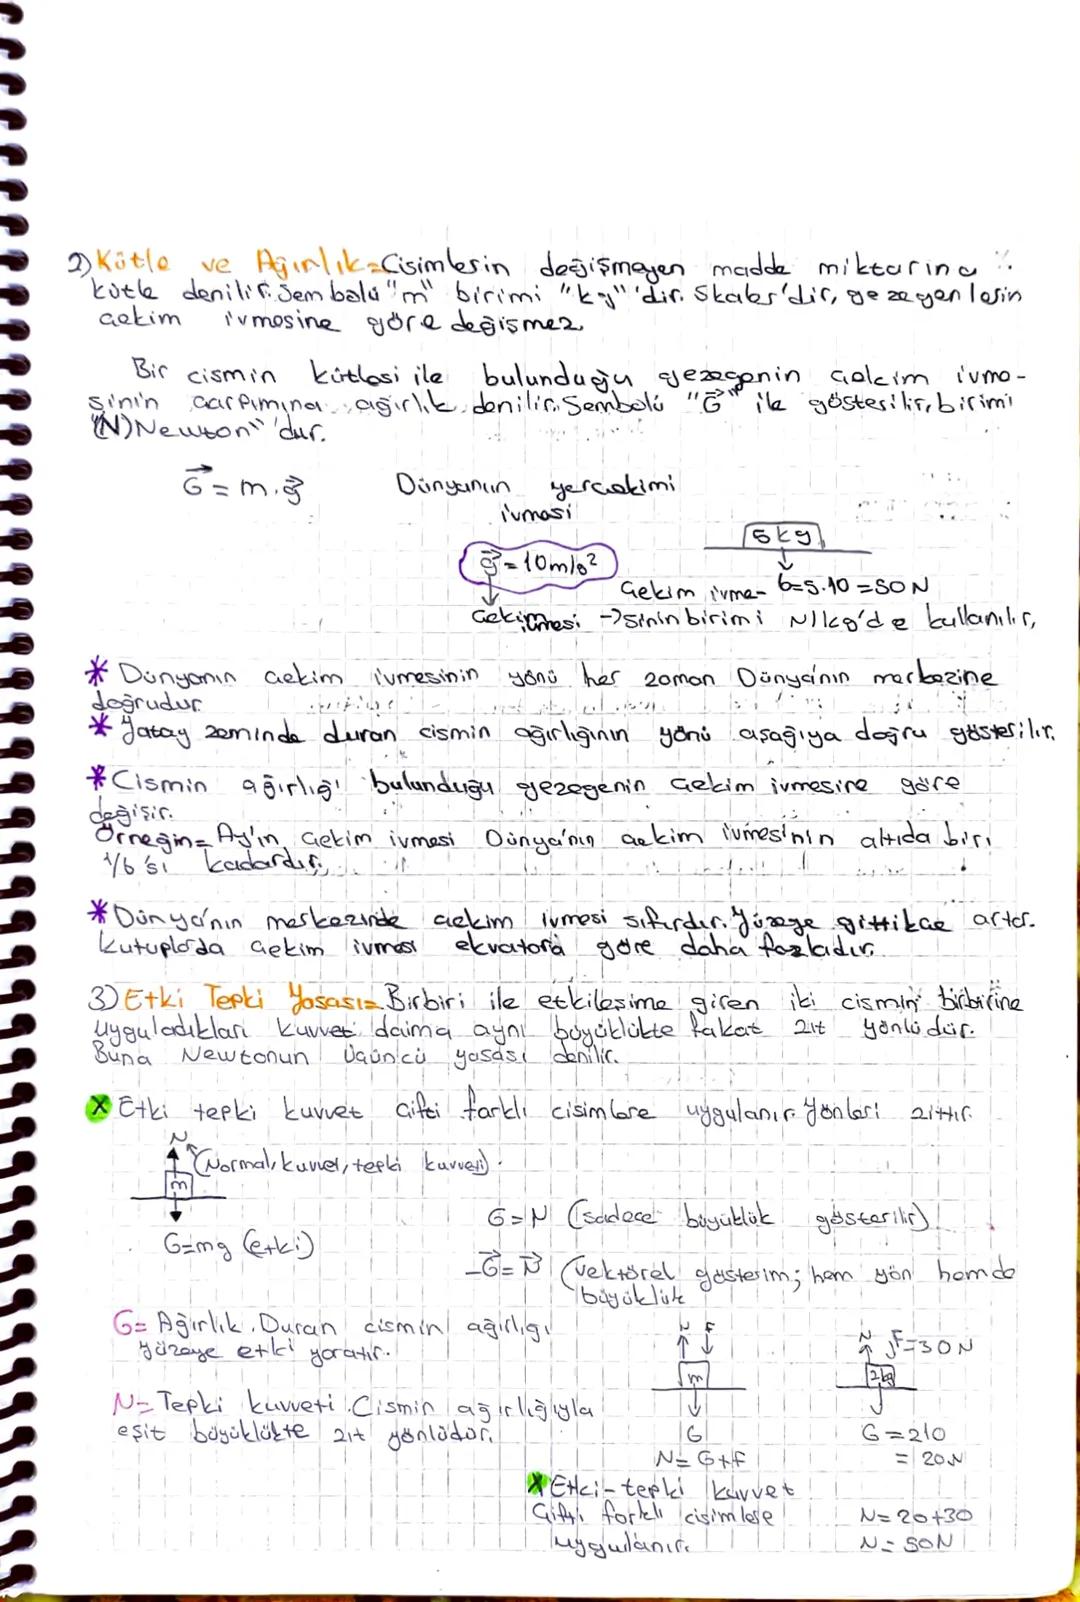 2) Kütle ve Ağırlık= Cisimlerin değişmeyen madde miktarına
kütle denilir. Sembolü "m" birimi "kg" 'dir. Skaler'dir, gezegenlerin
çekim ivmesine göre değişmez.
Bir cismin kütlesi ile bulunduğu gezegenin çekim ivme-
sinin çarpımına ağırlık denilir. Sembolü "G" ile gösterilir, birimi
(N) Newton" 'dur.
G = m.g
Dünyanın yerçekimi
ivmesi
5kg
g = 10m/s²
G=5.10 = 50 N
Çekim ivme-
Çekim ivmesi → sinin birimi N/kg'de kullanılır,
* Dünyanın çekim ivmesinin yönü her zaman Dünya'nın merkezine
doğrudur
* Yatay zeminde duran cismin ağırlığının yönü aşağıya doğru gösterilir.
* Cismin ağırlığı bulunduğu gezegenin çekim ivmesine göre
değişir.
Örneğin= Ay'ın çekim ivmesi Dünya'nın çekim ivmesinin altıda biri
1/6 'sı kadardır.
* Dünya'nın merkezinde çekim ivmesi sıfırdır. Yüzeye gittikçe artar.
Kutuplarda çekim ivmesi ekvatora göre daha fazladır.
3) Etki Tepki Yasası= Birbiri ile etkileşime giren iki cismin birbirine
uyguladıkları kuvvet daima aynı büyüklükte fakat zıt yönlüdür.
Buna Newtonun üçüncü yasası denilir.
X Etki tepki kuvvet çifti farklı cisimlere uygulanır. Yönleri zıttır.
N
(Normal, kuvvet, tepki kuvveti)
m
G=mg (etki)
G=N (sadece büyüklük gösterilir)
-G=N (vektörel gösterim; hem yön hemde
büyüklük
G= Ağırlık. Duran cismin ağırlığı
yüzeye etki yaratır.
N= Tepki kuvveti. Cismin ağırlığıyla
eşit büyüklükte zıt yönlüdür.
N F
m
G
N= G+F
N F=30N
2kg
G=210
= 20N
N= 20+30
N= 50N
X Etki-tepki kuvvet
çifti farklı cisimlere
uygulanır.